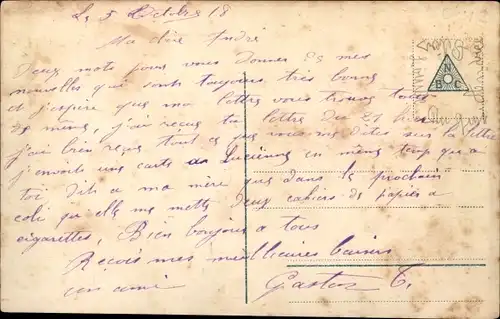 Le 5 Octobre 18
Ma chère André
Deux mots pour vous donner de mes
nouvelles qui sont toujours très bonne
et j'espire que ma lettre vous trouve tous
de même, j'ai reçu ta lettre du 21 hier
j'ai bien reçus tout ce que vous me dites sur la lettre
j'envoit une carte a Lucienne en même temp que a
toi dit a ma mère que dans le prochain
coli qu'elle me mette deux cahiers de papier a
cigarettes, Bien bonjours a tous
Reçois mes meilleures baisers
ton ami Gaston C.
N
B C